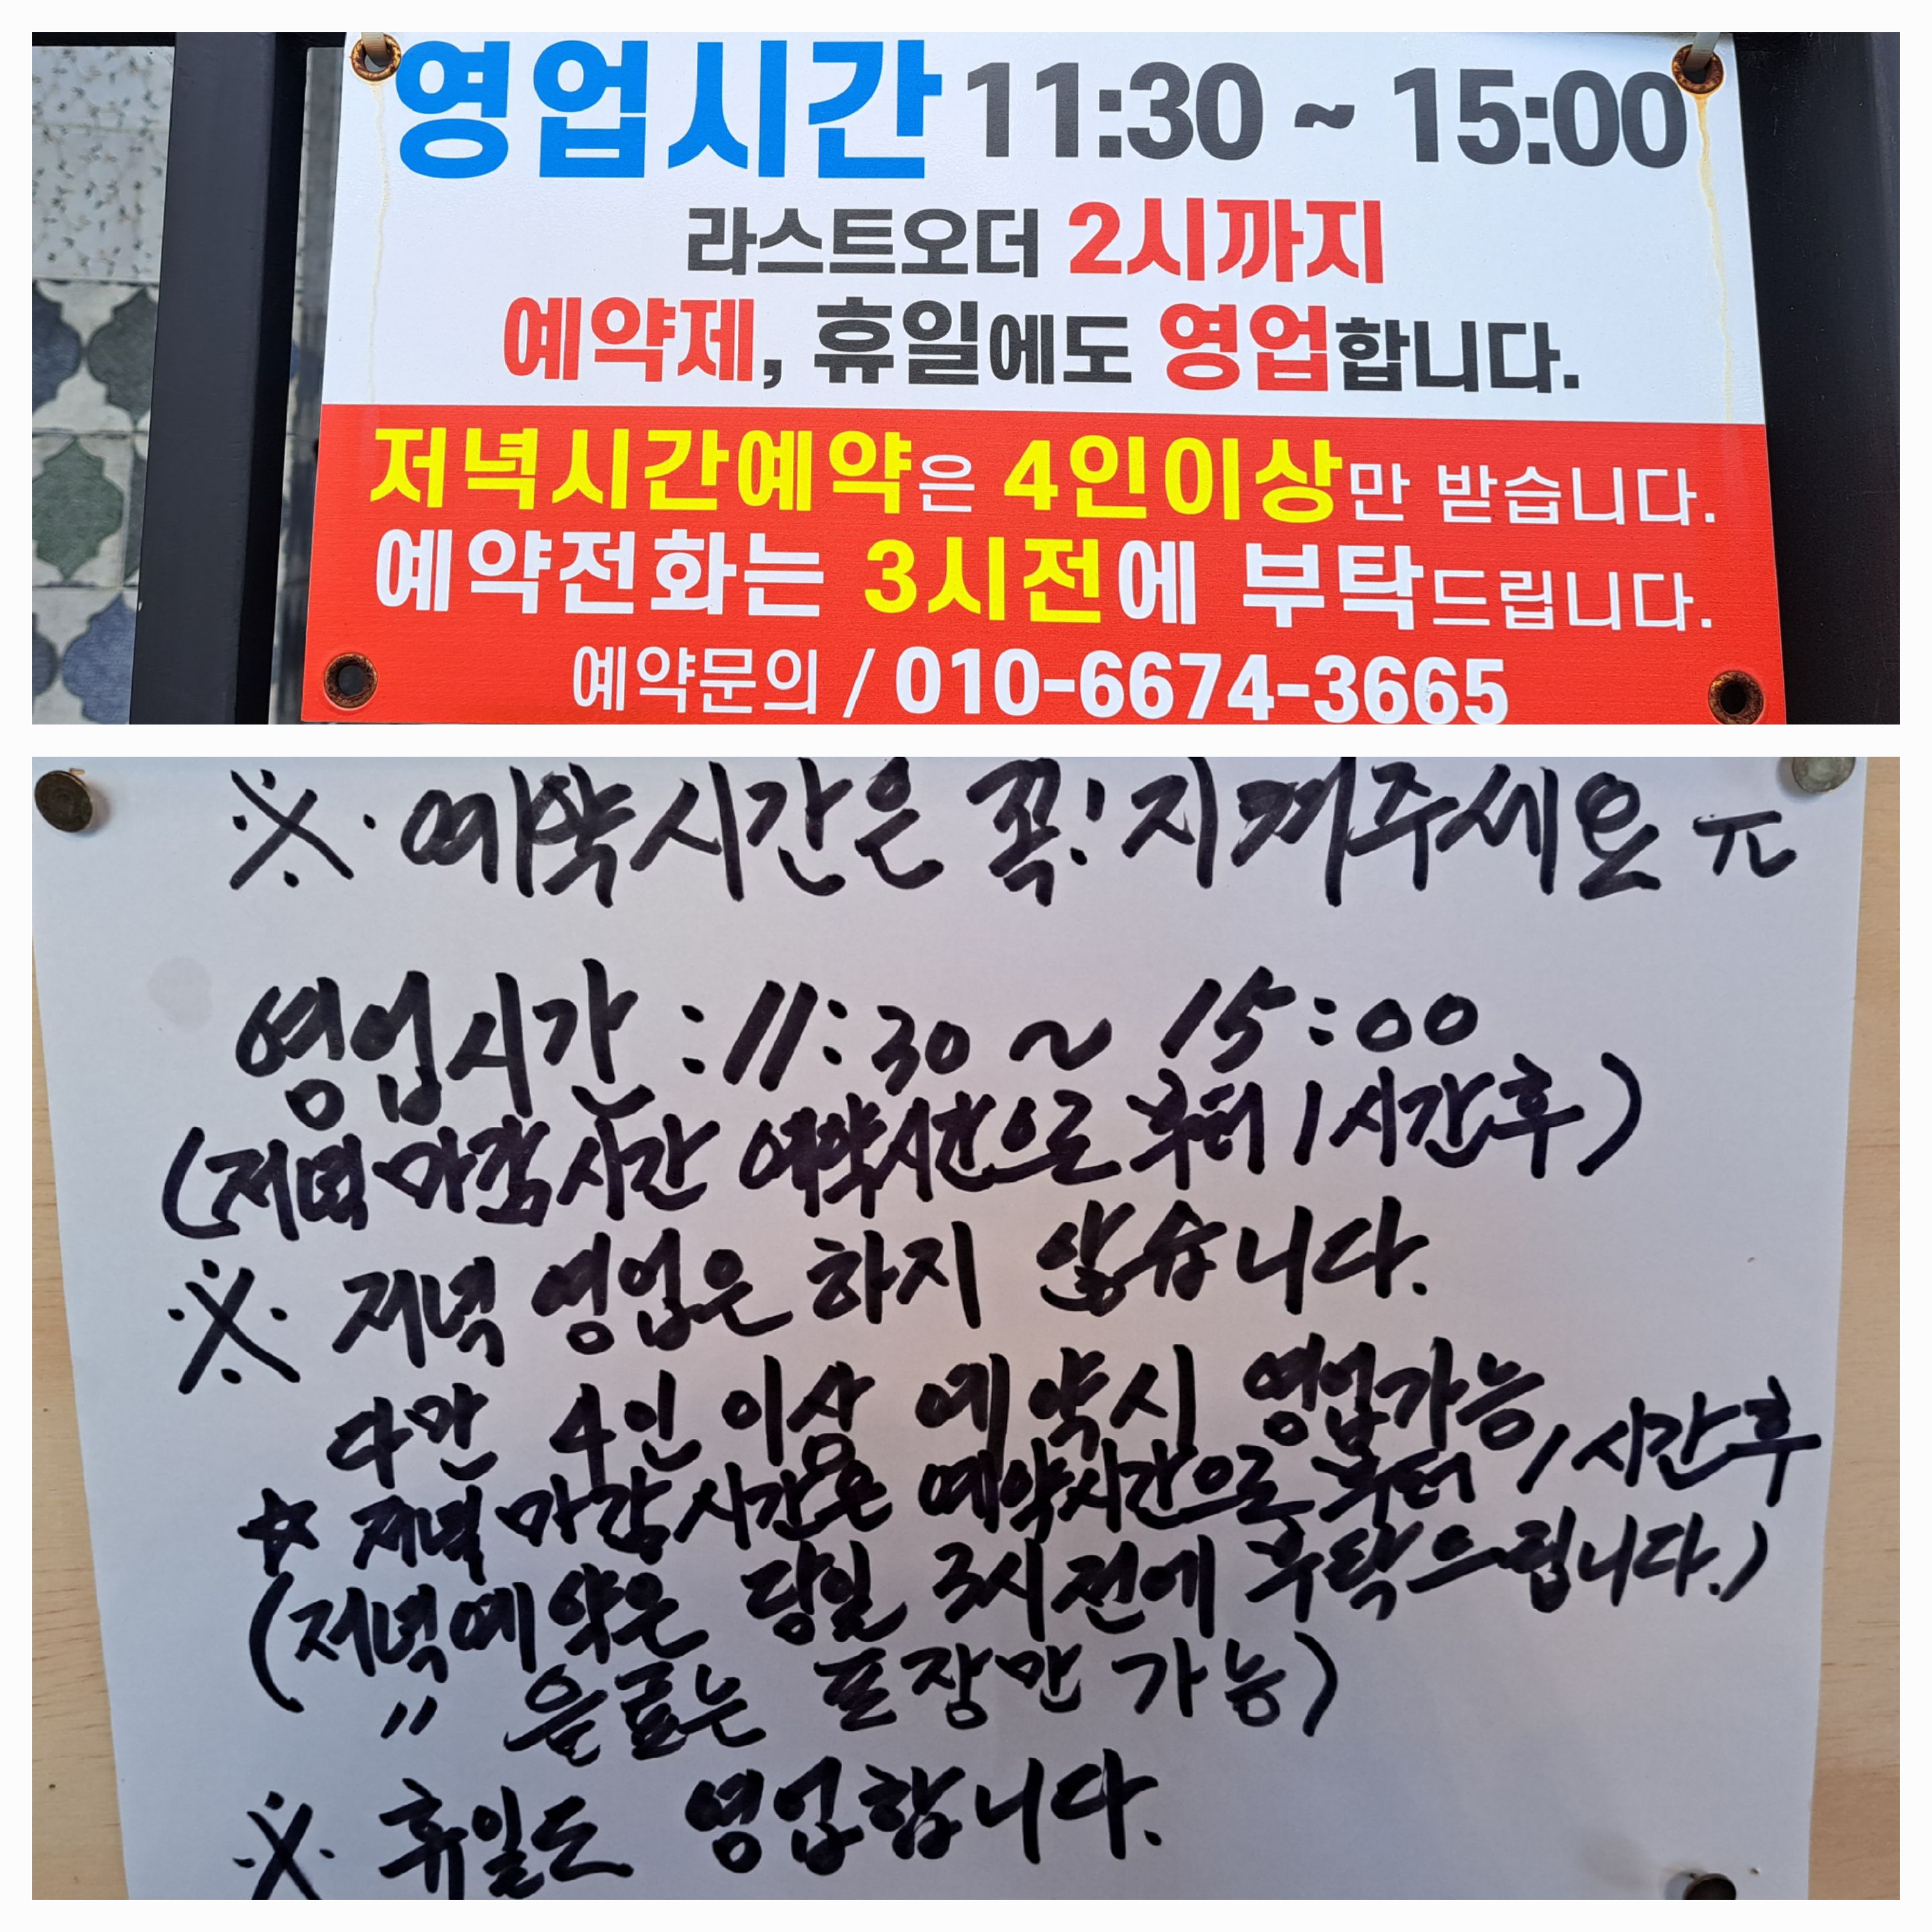 영업시간 11:30 ~ 15:00
라스트오더 2시까지
예약제, 휴일에도 영업합니다.
저녁시간예약은 4인이상만 받습니다.
예약전화는 3시전에 부탁드립니다.
예약문의 / 010-6674-3665
※ 예약시간은 꼭! 지켜주세요 ㅠ
영업시간 : 11:30 ~ 15:00
(저녁 마감시간 예약시간으로 부터 1시간후)
※ 저녁 영업은 하지 않습니다.
다만 4인 이상 예약시 영업가능
☆ 저녁 마감시간은 예약시간으로 부터 1시간후
(저녁예약은 당일 3시전에 부탁드립니다.)
〃 음료는 포장만 가능)
※ 휴일도 영업합니다.